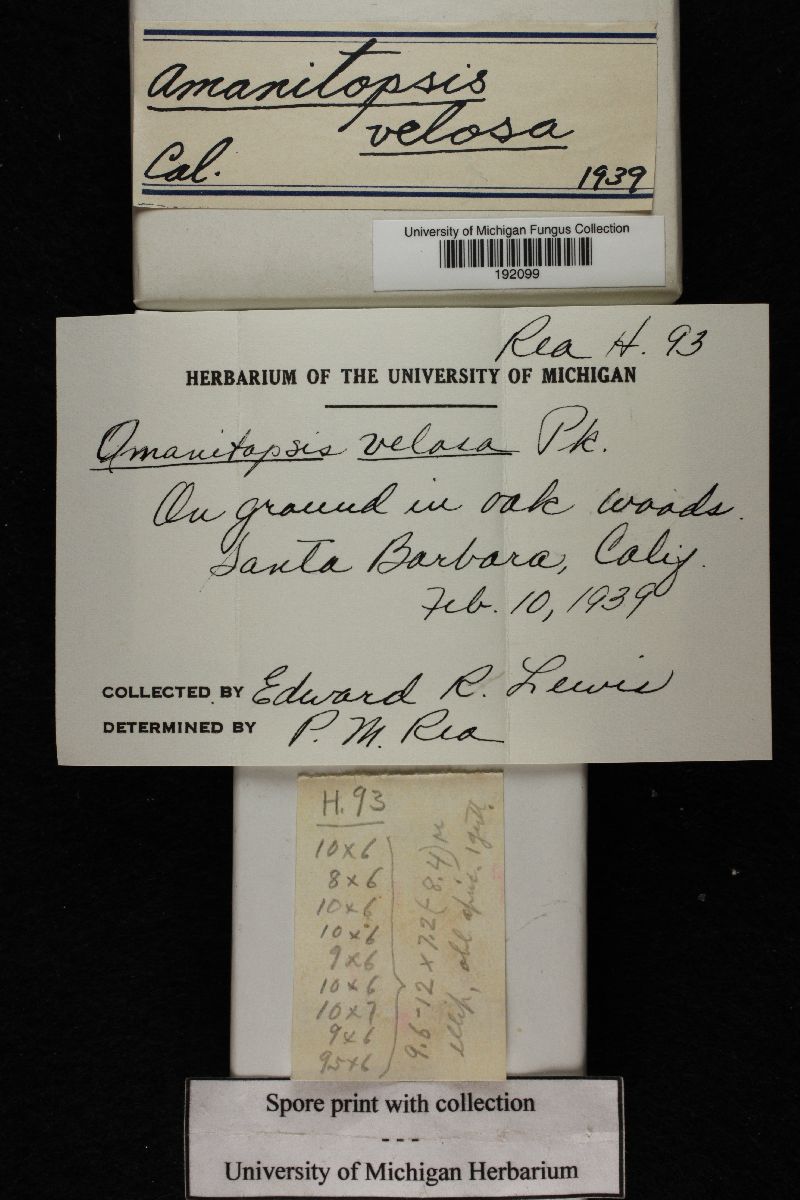 Amanitopsis
velosa
Cal.
1939
University of Michigan Fungus Collection
192099
Rea H. 93
HERBARIUM OF THE UNIVERSITY OF MICHIGAN
Amanitopsis velosa Pk.
On ground in oak woods.
Santa Barbara, Calif.
Feb. 10, 1939
COLLECTED BY Edward R. Lewis
DETERMINED BY P. M. Rea
H. 93
10 x 6
8 x 6
10 x 6
10 x 6
9 x 6
10 x 6
10 x 7
9 x 6
95 x 6
9.6-12 x 7.2(-8.4) μ
ellip, obl apic. 1 gutt.
Spore print with collection
---
University of Michigan Herbarium